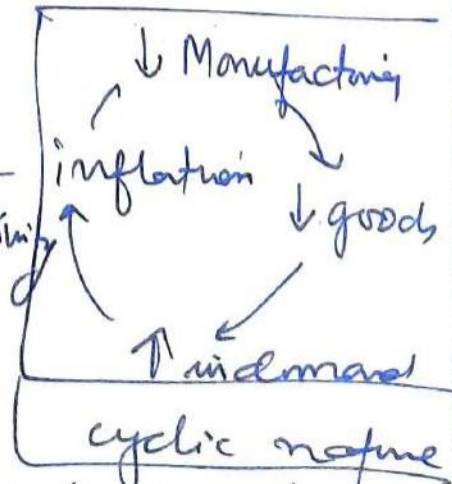 ↓ Manufacturing
inflation
↓ goods
↑ in demand
cyclic nature